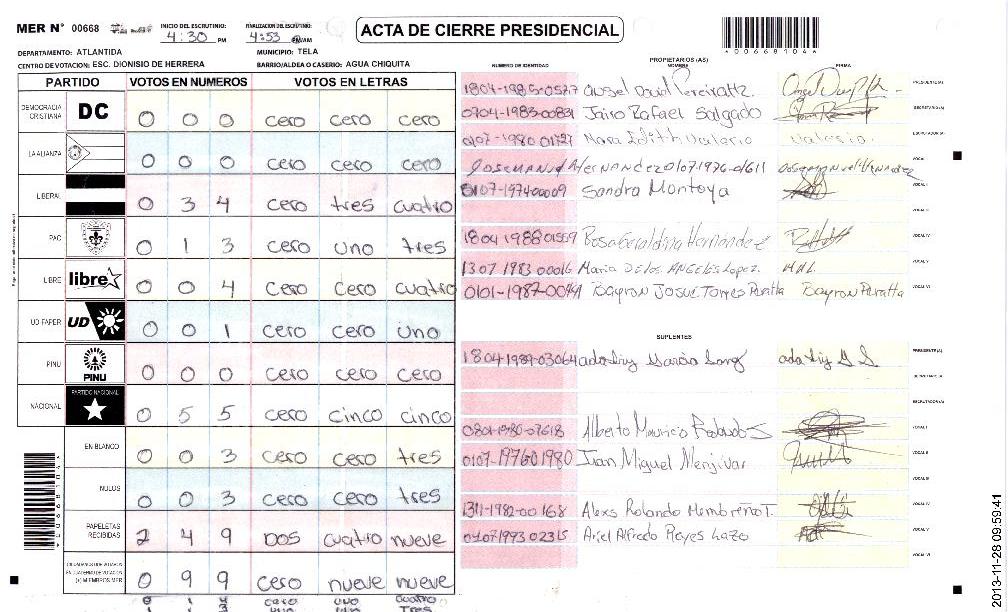 MER Nº 00668 INICIO DEL ESCRUTINIO: 4:30 PM FINALIZACION DEL ESCRUTINIO: 4:53 PM/AM
ACTA DE CIERRE PRESIDENCIAL
*00668104*
DEPARTAMENTO: ATLANTIDA MUNICIPIO: TELA
CENTRO DE VOTACION: ESC. DIONISIO DE HERRERA BARRIO/ALDEA O CASERIO: AGUA CHIQUITA
PARTIDO VOTOS EN NUMEROS VOTOS EN LETRAS
DEMOCRACIA CRISTIANA DC 0 0 0 cero cero cero
LA ALIANZA 0 0 0 cero cero cero
LIBERAL 0 3 4 cero tres cuatro
PAC 0 1 3 cero uno tres
LIBRE libre 0 0 4 cero cero cuatro
UD FAPER UD 0 0 1 cero cero uno
PINU PINU 0 0 0 cero cero cero
NACIONAL PARTIDO NACIONAL 0 5 5 cero cinco cinco
EN BLANCO 0 0 3 cero cero tres
NULOS 0 0 3 cero cero tres
PAPELETAS RECIBIDAS 2 4 9 DOS cuatro nueve
CIUDADANOS QUE VOTARON EN CUADERNO DE VOTACION (+) MIEMBROS MER 0 9 9 cero nueve nueve
0 1 4 cero uno cuatro
1 1 3 uno uno Tres
PROPIETARIOS (AS)
NUMERO DE IDENTIDAD NOMBRE FIRMA
PRESIDENTE(A)
0704-1983-00831 Jairo Rafael Salgado SECRETARIO(A)
0107-1980 01727 Nora Edith Valerio Valerio ESCRUTADOR(A)
JOSEMANUEL HERNANDEZ 0107-1976-01611 VOCAL
0107-1974-00009 Sandra Montoya VOCAL I
VOCAL II
1804 1988 01559 Rosa Geraldina Hernandez VOCAL IV
1307 1983 00016 Maria DE LOS ANGELES Lopez. M A L. VOCAL V
0101-1987-00 Bayron Josue Torres Peratta Bayron Peratta VOCAL VI
SUPLENTES
1804-1989-03064 PRESIDENTE(A)
SECRETARIO(A)
ESCRUTADOR(A)
0801-1980-07618 Alberto Mauricio VOCAL I
0107-1976 01980 Juan Miguel Menjivar VOCAL II
1311-1982-00168 Alexs Rolando Membreño T. VOCAL IV
0107 1993 02315 Ariel Alfredo Reyes Lazo VOCAL V
VOCAL VI
2013-11-28 09:59:41